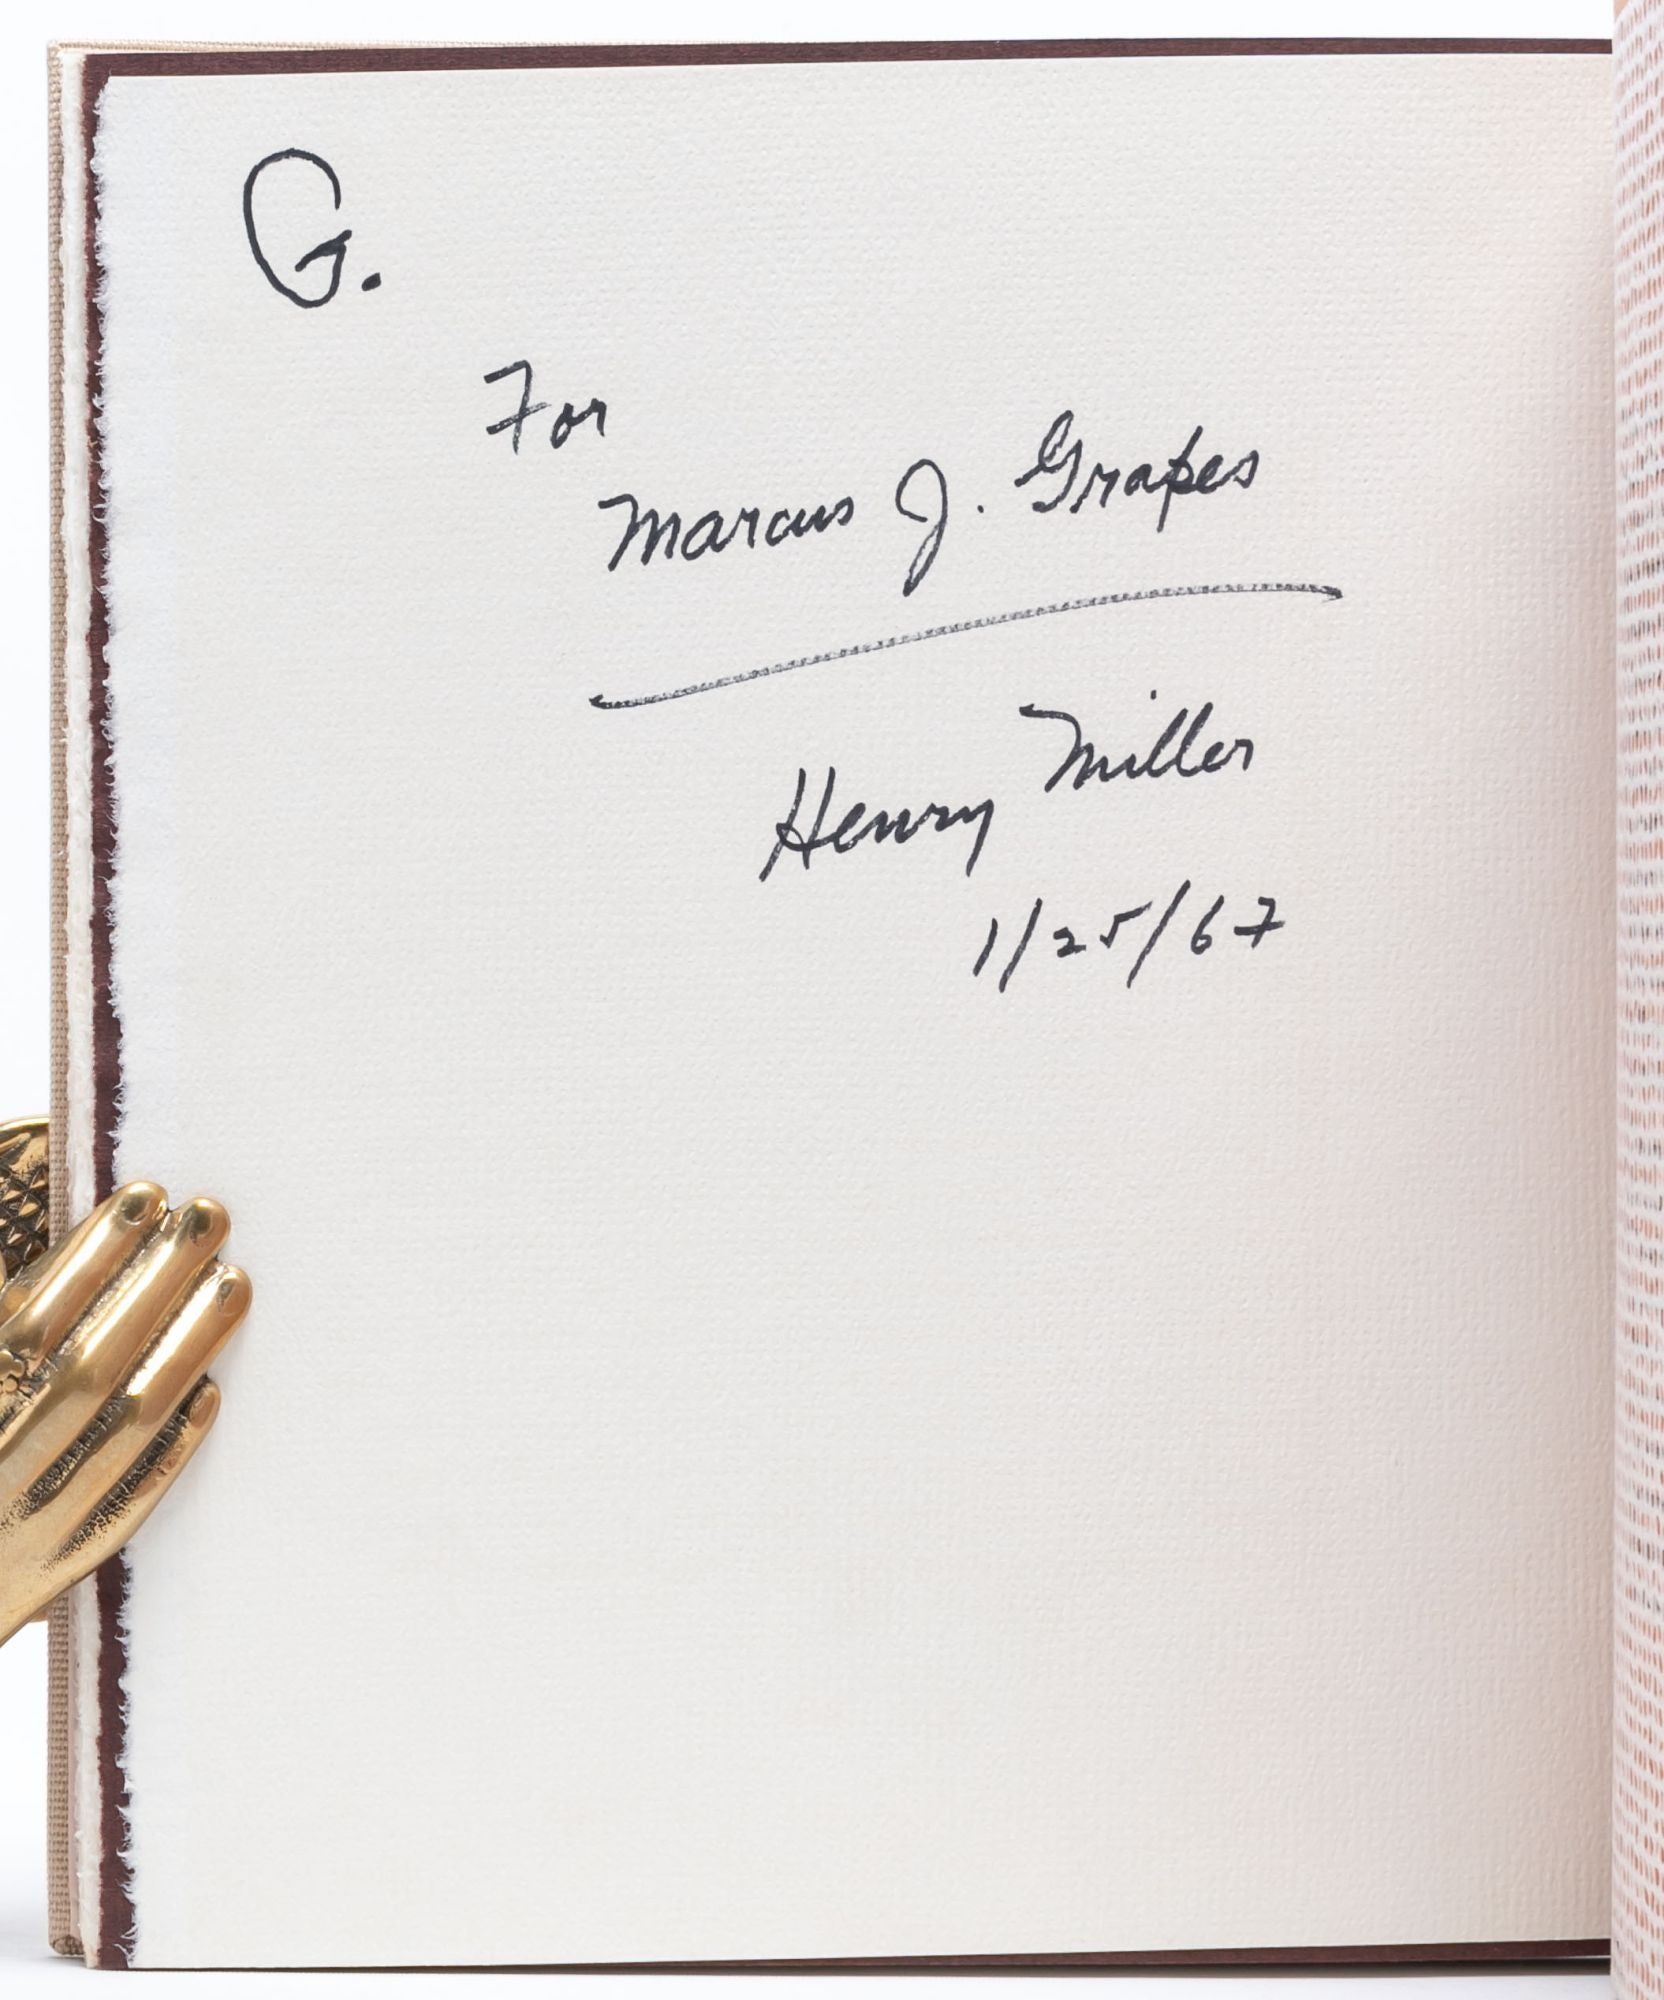 G.
For
Marcus J. Grapes
Henry Miller
1/25/67